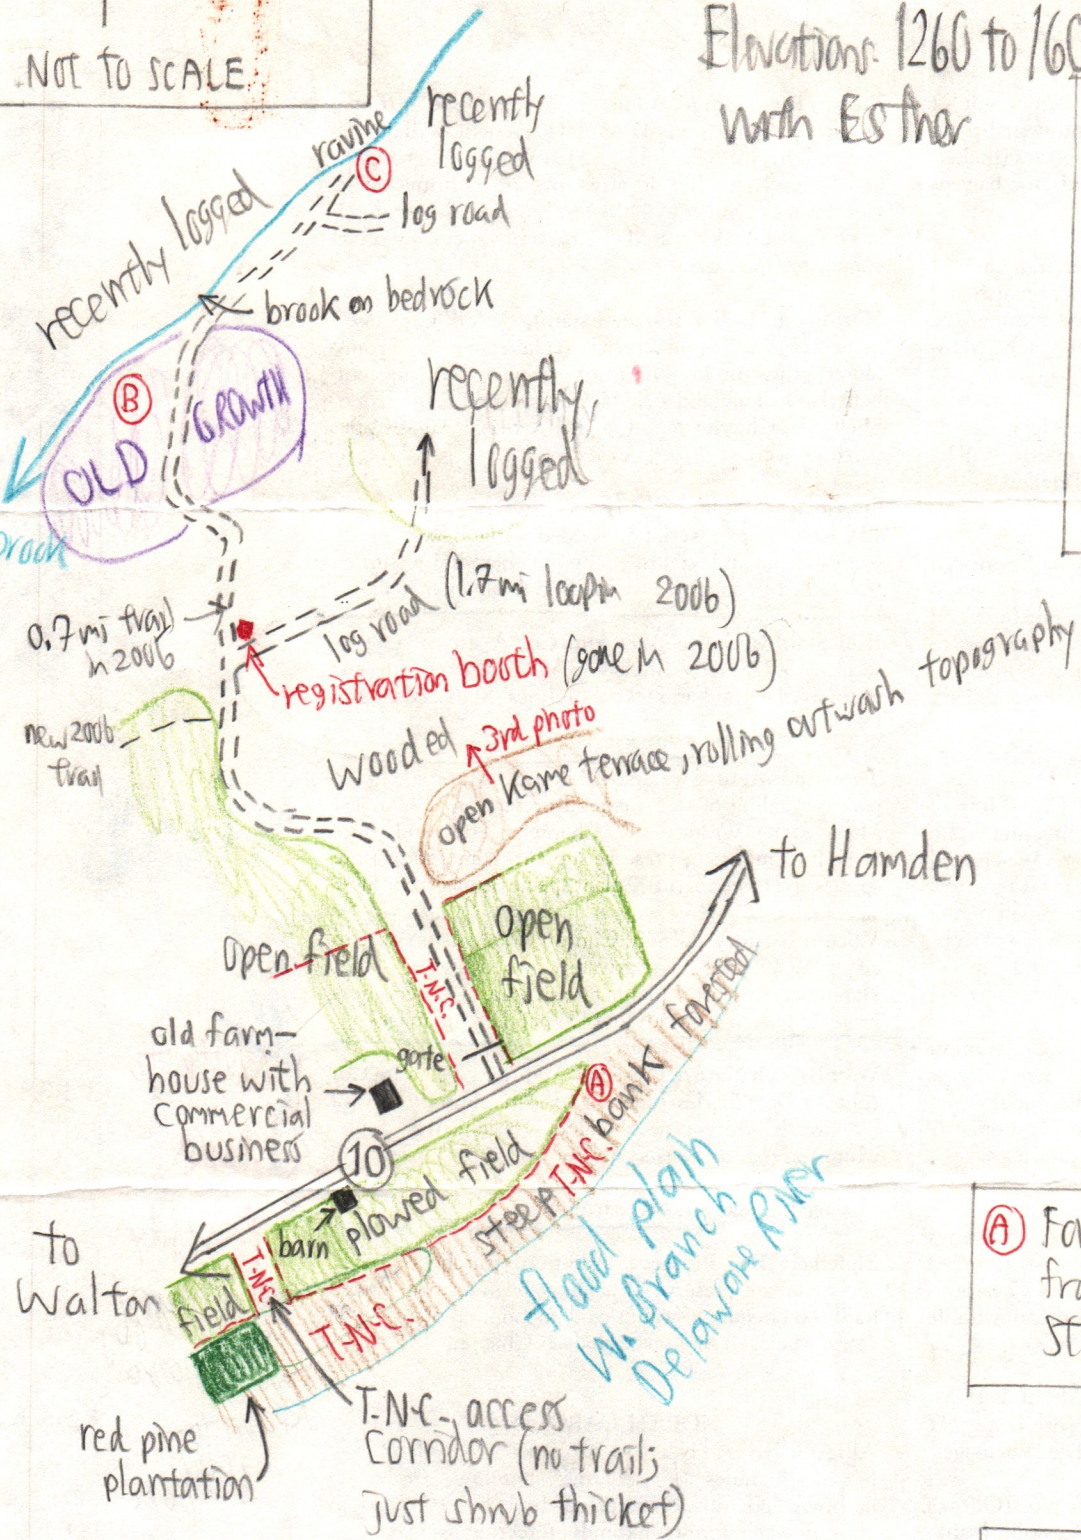 NOT TO SCALE
Elevations. 1260 to
with Esther
ravine
recently
logged
C
log road
recently logged
brook on bedrock
B
OLD
GROWTH
recently,
logged
brook
0.7 mi trail
in 2006
log road
(1.7 mi loop in 2006)
registration booth (gone in 2006)
new 2006
trail
wooded
3rd photo
open Kame terrace, rolling outwash topography
to Hamden
open
field
open field
T.N.C.
forested
old farm-
house with
commercial
business
gate
A
10
plowed field
barn
steep T-N-C. bank
to
Walton
T-N-C
field
T-N-C.
flood plain
W. Branch
Delaware River
A
red pine
plantation
T-N-C-, access
Corridor (no trail;
just shrub thicket)